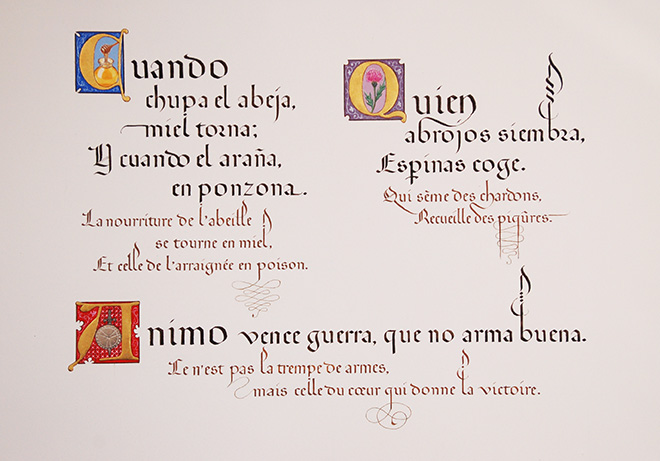 Cuando
chupa el abeja,
miel torna;
Y cuando el araña,
en ponzona.
La nourriture de l'abeille
se tourne en miel,
Et celle de l'arraignée en poison.
Quien
abrojos siembra,
Espinas coge.
Qui sème des chardons,
Recueille des piqûres.
Animo vence guerra, que no arma buena.
Ce n'est pas la trempe de armes,
mais celle du cœur qui donne la victoire.